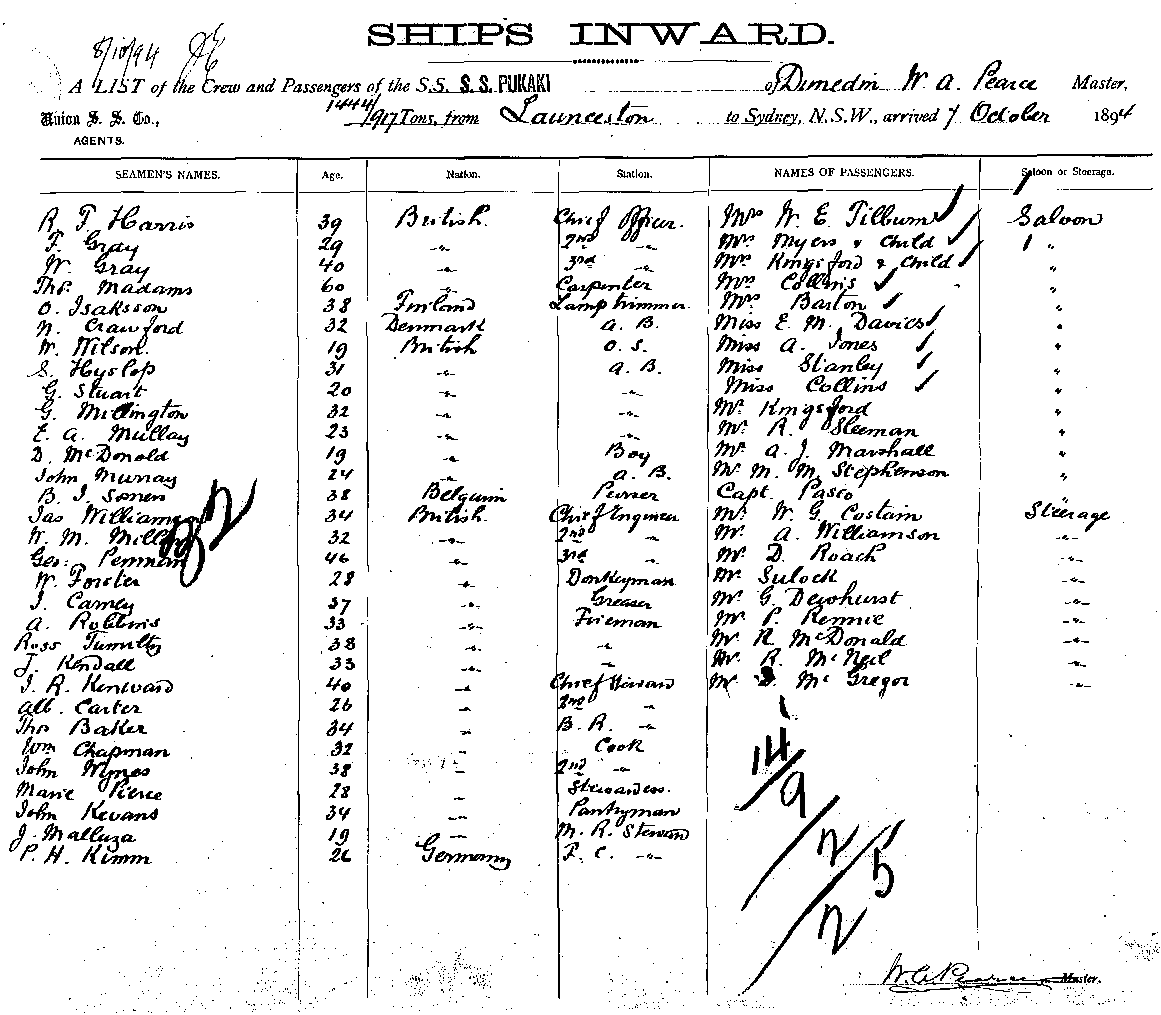 SHIPS INWARD.
8/10/94
A LIST of the Crew and Passengers of the S.S. S.S. PUKAKI of Dunedin W. A. Pearce Master,
Union S. S. Co., 1444/1917 Tons, from Launceston to Sydney, N.S.W., arrived 7 October 1894
AGENTS.
SEAMEN'S NAMES. Age. Nation. Station. NAMES OF PASSENGERS. Saloon or Steerage.
R T Harris 39 British. Chief Officer. Mrs W. E. Tilburn Saloon
F. Gray 29 " 2nd " Mrs Myers & Child "
W. Gray 40 " 3rd " Mrs Kingsford & Child "
Thos. Madams 60 " Carpenter Mrs Collins "
O. Isaksson 38 Finland Lamp trimmer Mrs Barton "
N. Crawford 32 Denmark A. B. Miss E. M. Davies "
W. Wilson. 19 British O. S. Miss A. Jones "
S. Hyslop 31 " A. B. Miss Stanley "
G. Stuart 20 " " Miss Collins "
G. Millington 32 " " Mr Kingsford "
E. A. Mullay 23 " " Mr R. Sleeman "
D. McDonald 19 " Boy Mr A. J. Marshall "
John Murray 24 " A. B. Mr M. M. Stephenson "
B. J. 38 Belguim Purser Capt. Pasco "
Jas Williams 34 British. Chief Engineer Mr W. G. Costain Steerage
W. M. 32 " 2nd " Mr A. Williamson "
Geo. 46 " 3rd " Mr D. Roach "
W. Forster 28 " Donkeyman Mr Sulock "
J. Carney 37 " Greaser Mr G. Dewhurst "
A. Robbins 33 " Fireman Mr P. Rennie "
Ross Tumilty 38 " " Mr R. McDonald "
J. Kendall 33 " " Mr R. McNeil "
J. R. Kenward 40 " Chief Steward Mr McGregor "
Alb. Carter 26 " 2nd "
Thos Baker 34 " B. R. "
Wm Chapman 32 " Cook
John Wynes 38 " 2nd "
Marie Pierce 28 " Stewardess.
John Kevans 34 " Pantryman
J. Malluza 19 " M. R. Steward
P. H. Kimm 26 Germany F. C. "
32
14/
9/
2/5
2
W. A. Pearce Master.